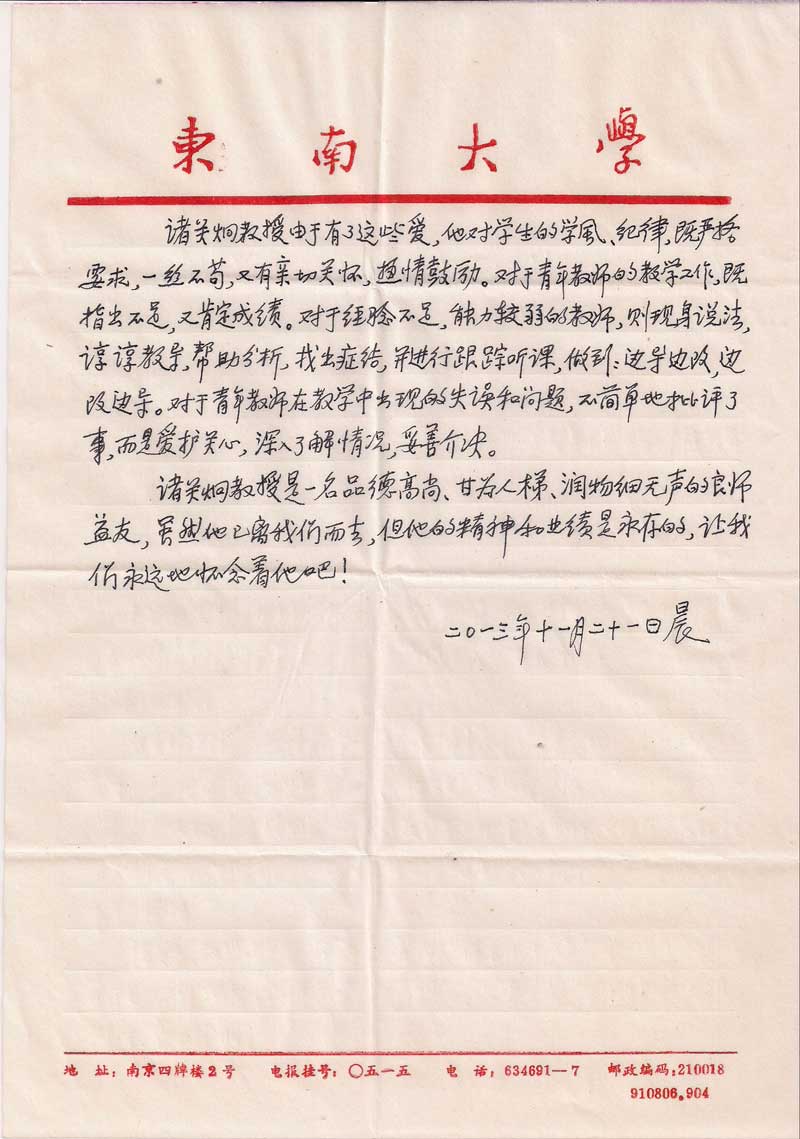 東南大學
诸关炯教授由于有了这些爱,他对学生的学风、纪律,既严格
要求,一丝不苟,又有亲切关怀,热情鼓励。对于青年教师的教学工作,既
指出不足,又肯定成绩。对于经验不足,能力较弱的教师,则现身说法,
谆谆教导,帮助分析,找出症结,并进行跟踪听课,做到:边导边改,边
改边导。对于青年教师在教学中出现的失误和问题,不简单地批评了
事,而是爱护关心,深入了解情况,妥善介决。
诸关炯教授是一名品德高尚、甘为人梯、润物细无声的良师
益友,虽然他已离我们而去,但他的精神和业绩是永存的,让我
们永远地怀念着他吧!
二〇一三年十一月二十一日晨
地 址:南京四牌楼2号 电报挂号:〇五一五 电 话:634691—7 邮政编码:210018
910806.904